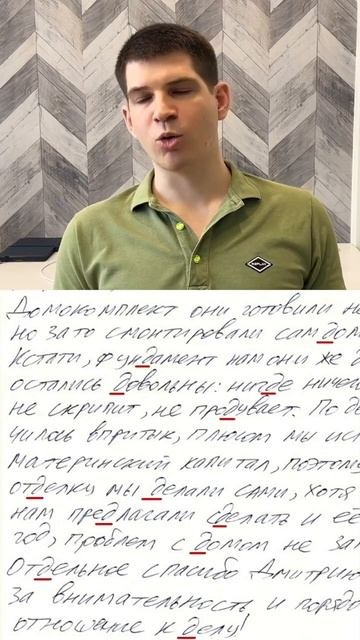 REPLAY
Домокомплект они готовили
но зато смонтировали сам дом
Кстати, фундамент нам они же
остались довольны: нигде ничего
не скрипит, не продувает. По
чилась впритык, плюсом мы
материнский капитал, поэтому
отделку мы делали сами, хотя
нам предлагали сделать и её
год, проблем с домом не
Отдельное спасибо Дмитрию
за внимательность и
отношение к делу!